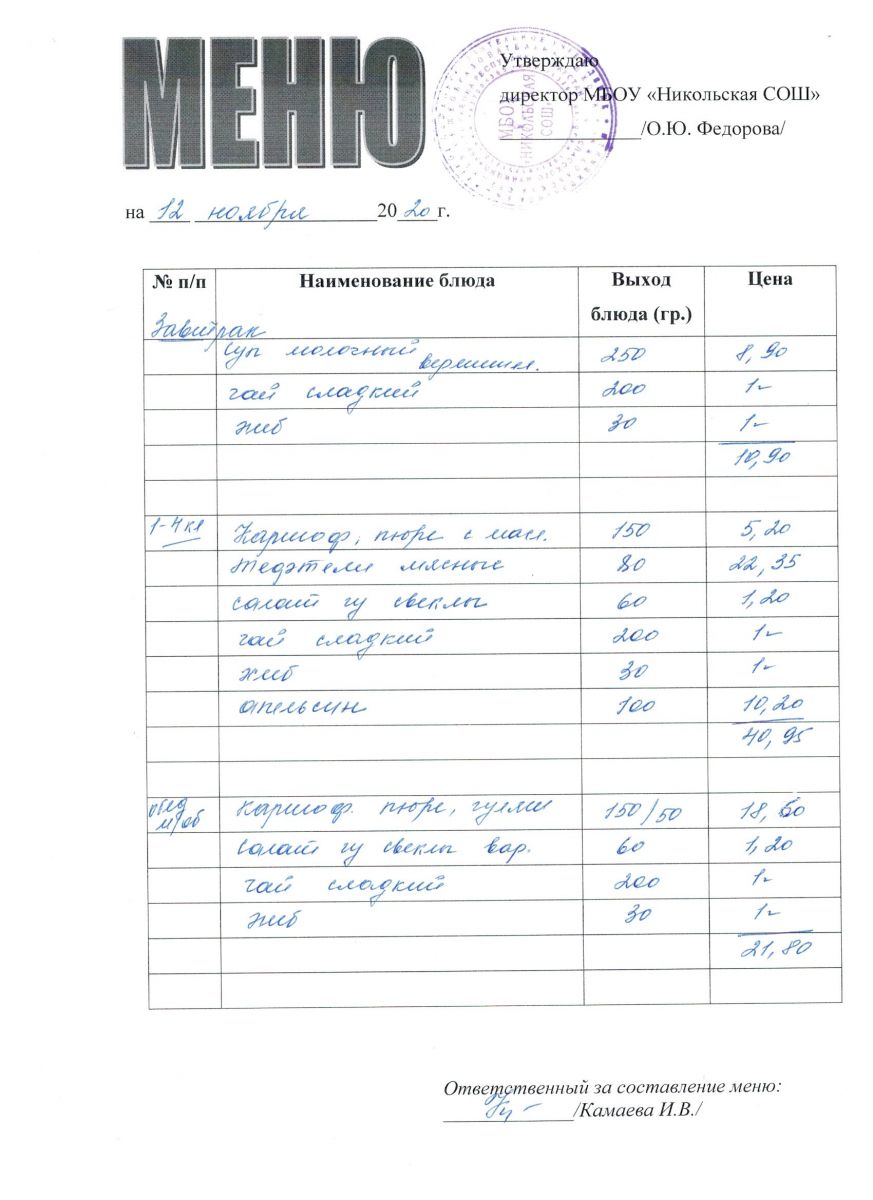 МЕНЮ
Утверждаю
директор МБОУ «Никольская СОШ»
/О.Ю. Федорова/
МБОУ
НИКОЛЬСКАЯ
СОШ
на 12 ноября 2020 г.
№ п/п Наименование блюда Выход блюда (гр.) Цена
Завтрак
Суп молочный вермишел. 250 8,90
чай сладкий 200 1-
хлеб 30 1-
10,90
1-4 кл Картоф, пюре с масл. 150 5,20
Тефтели мясные 80 22,35
салат из свеклы 60 1,20
чай сладкий 200 1-
хлеб 30 1-
апельсин 100 10,20
40,95
обед м/об Картоф. пюре, гуляш 150/50 18,60
Салат из свеклы вар. 60 1,20
чай сладкий 200 1-
хлеб 30 1-
21,80
Ответственный за составление меню:
/Камаева И.В./